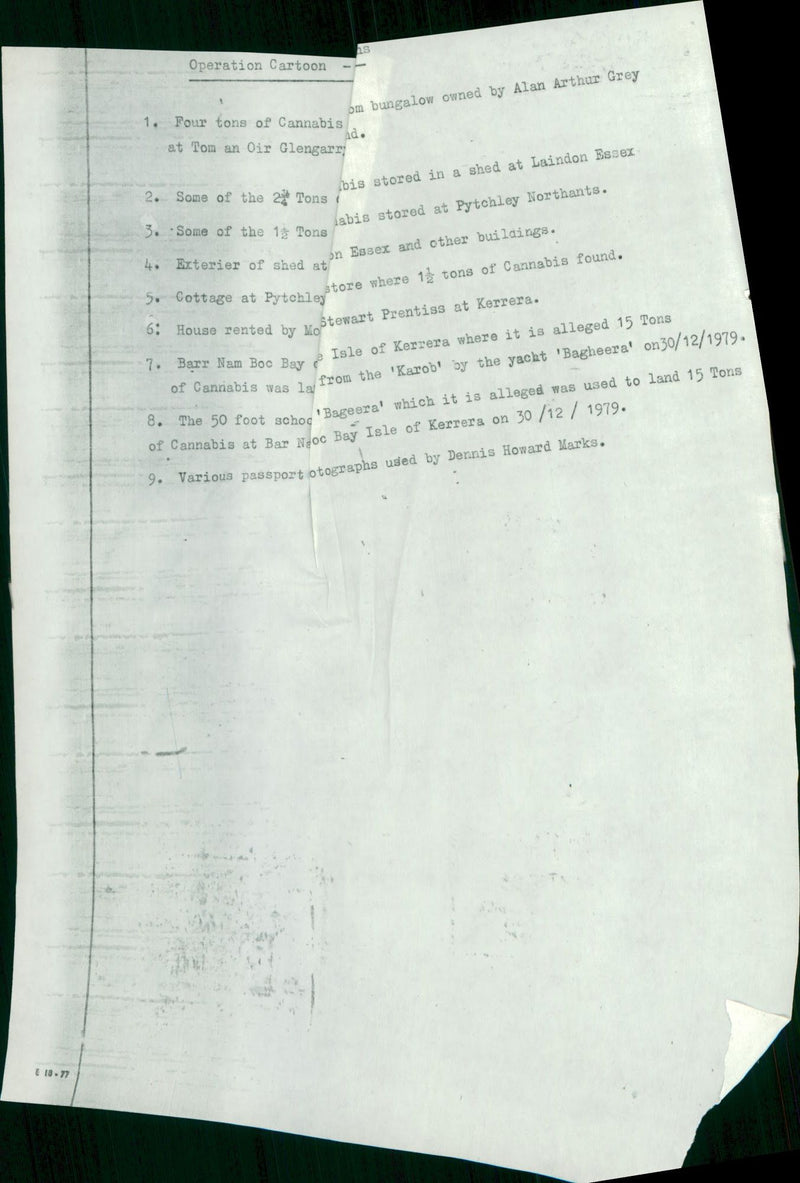 Operation Cartoon --
1. Four tons of Cannabis om bungalow owned by Alan Arthur Grey
at Tom an Oir Glengarr d.
2. Some of the 2¾ Tons bis stored in a shed at Laindon Essex
3. Some of the 1½ Tons abis stored at Pytchley Northants.
4. Exterier of shed at on Essex and other buildings.
5. Cottage at Pytchley store where 1½ tons of Cannabis found.
6: House rented by Mo Stewart Prentiss at Kerrera.
7. Barr Nam Boc Bay Isle of Kerrera where it is alleged 15 Tons
of Cannabis was la from the 'Karob' by the yacht 'Bagheera' on30/12/1979.
8. The 50 foot schoo 'Bageera' which it is alleged was used to land 15 Tons
of Cannabis at Bar N oc Bay Isle of Kerrera on 30 /12 / 1979.
9. Various passport otographs used by Dennis Howard Marks.
6 10.77